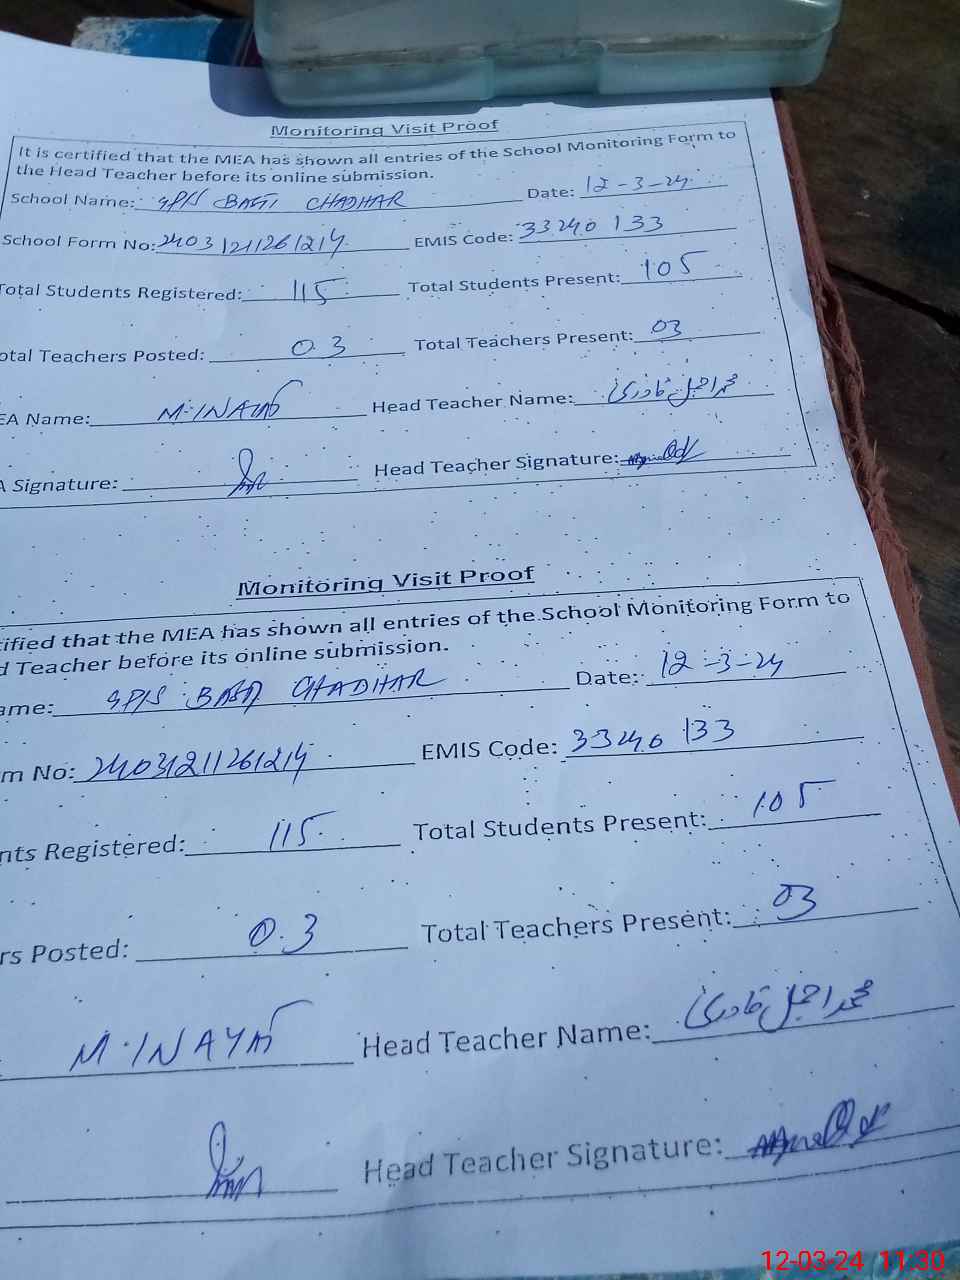 Monitoring Visit Proof
It is certified that the MEA has shown all entries of the School Monitoring Form to
the Head Teacher before its online submission.
School Name: GPS BASTI CHADHAR Date: 12-3-24
School Form No: 2403 1211261214 EMIS Code: 33240 133
Total Students Registered: 115 Total Students Present: 105
otal Teachers Posted: 03 Total Teachers Present: 03
EA Name: M. INAYAT Head Teacher Name: محمد اجمل قادری
A Signature: Head Teacher Signature:
Monitoring Visit Proof
tified that the MEA has shown all entries of the School Monitoring Form to
d Teacher before its online submission.
ame: GPS BASTI CHADHAR Date: 12-3-24
m No: 24031211261214 EMIS Code: 33240 133
nts Registered: 115 Total Students Present: 105
rs Posted: 03 Total Teachers Present: 03
M. INAYAT Head Teacher Name: محمد اجمل قادری
Head Teacher Signature:
12-03-24 11:30